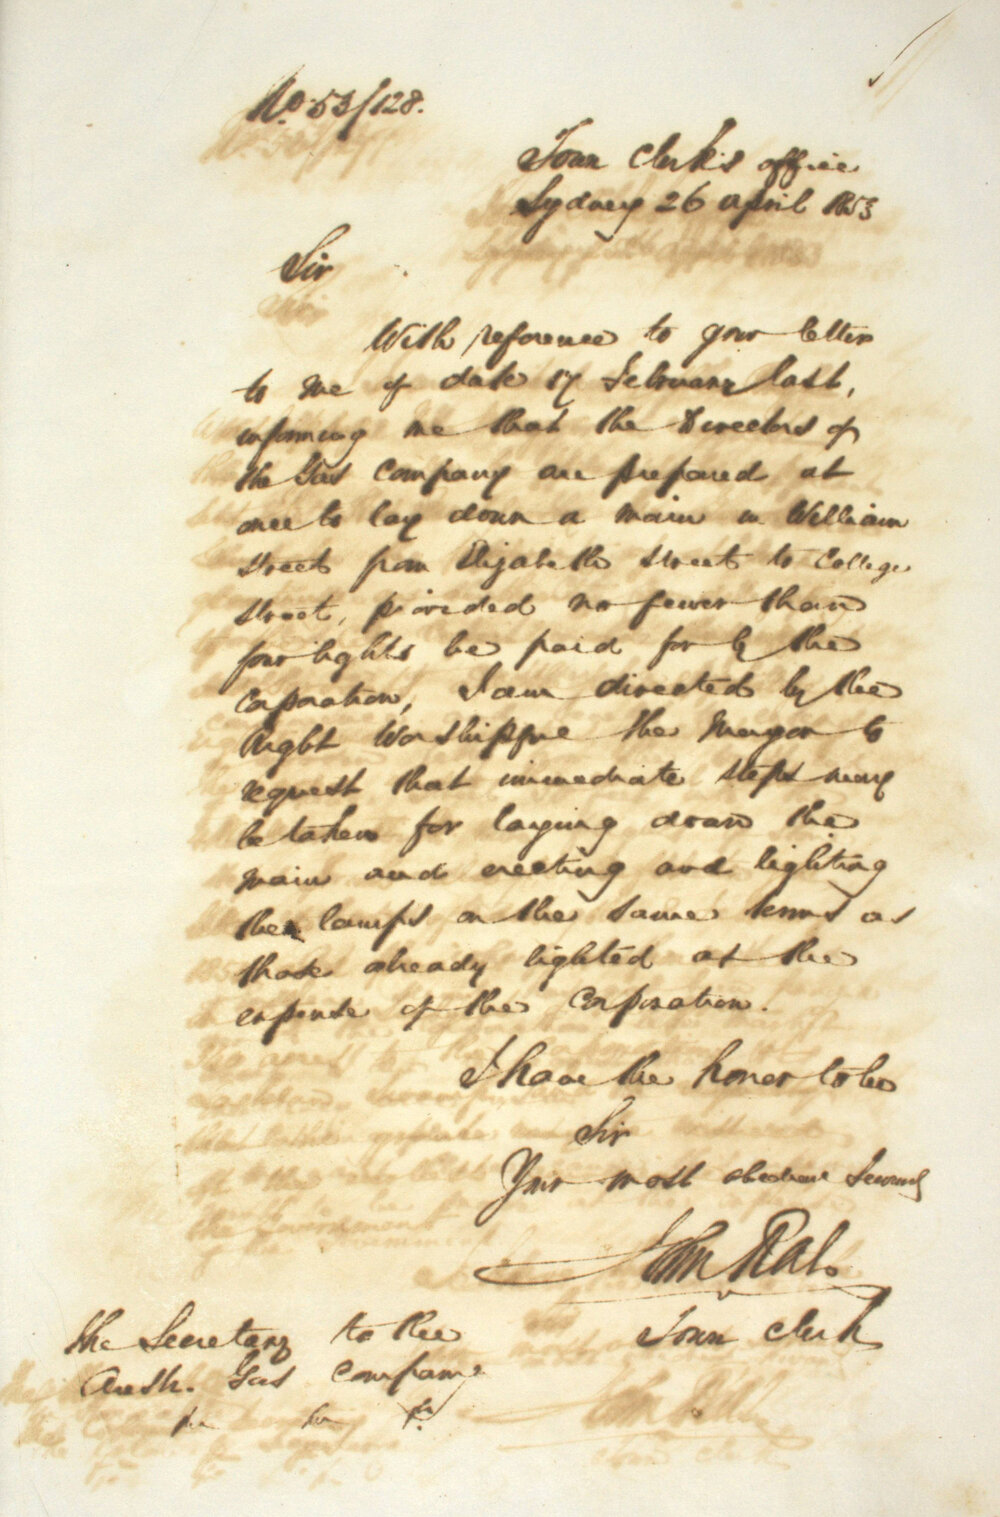 No. 53/128.
Town Clerk's office
Sydney 26 april 1853
Sir
With reference to your letter
to me of date 17 February last,
informing me that the Directors of
the Gas Company are prepared at
once to lay down a main in William
Street from Elizabeth Street to College
Street, provided no fewer than
four lights be paid for by the
Corporation, I am directed by the
Right Worshipful the Mayor to
request that immediate steps may
be taken for laying down the
main and erecting and lighting
the lamps on the same terms as
those already lighted at the
expense of the Corporation.
I have the honor to be
Sir
Your most obedient Servant
John
Town Clerk
The Secretary to the
Austn. Gas Company